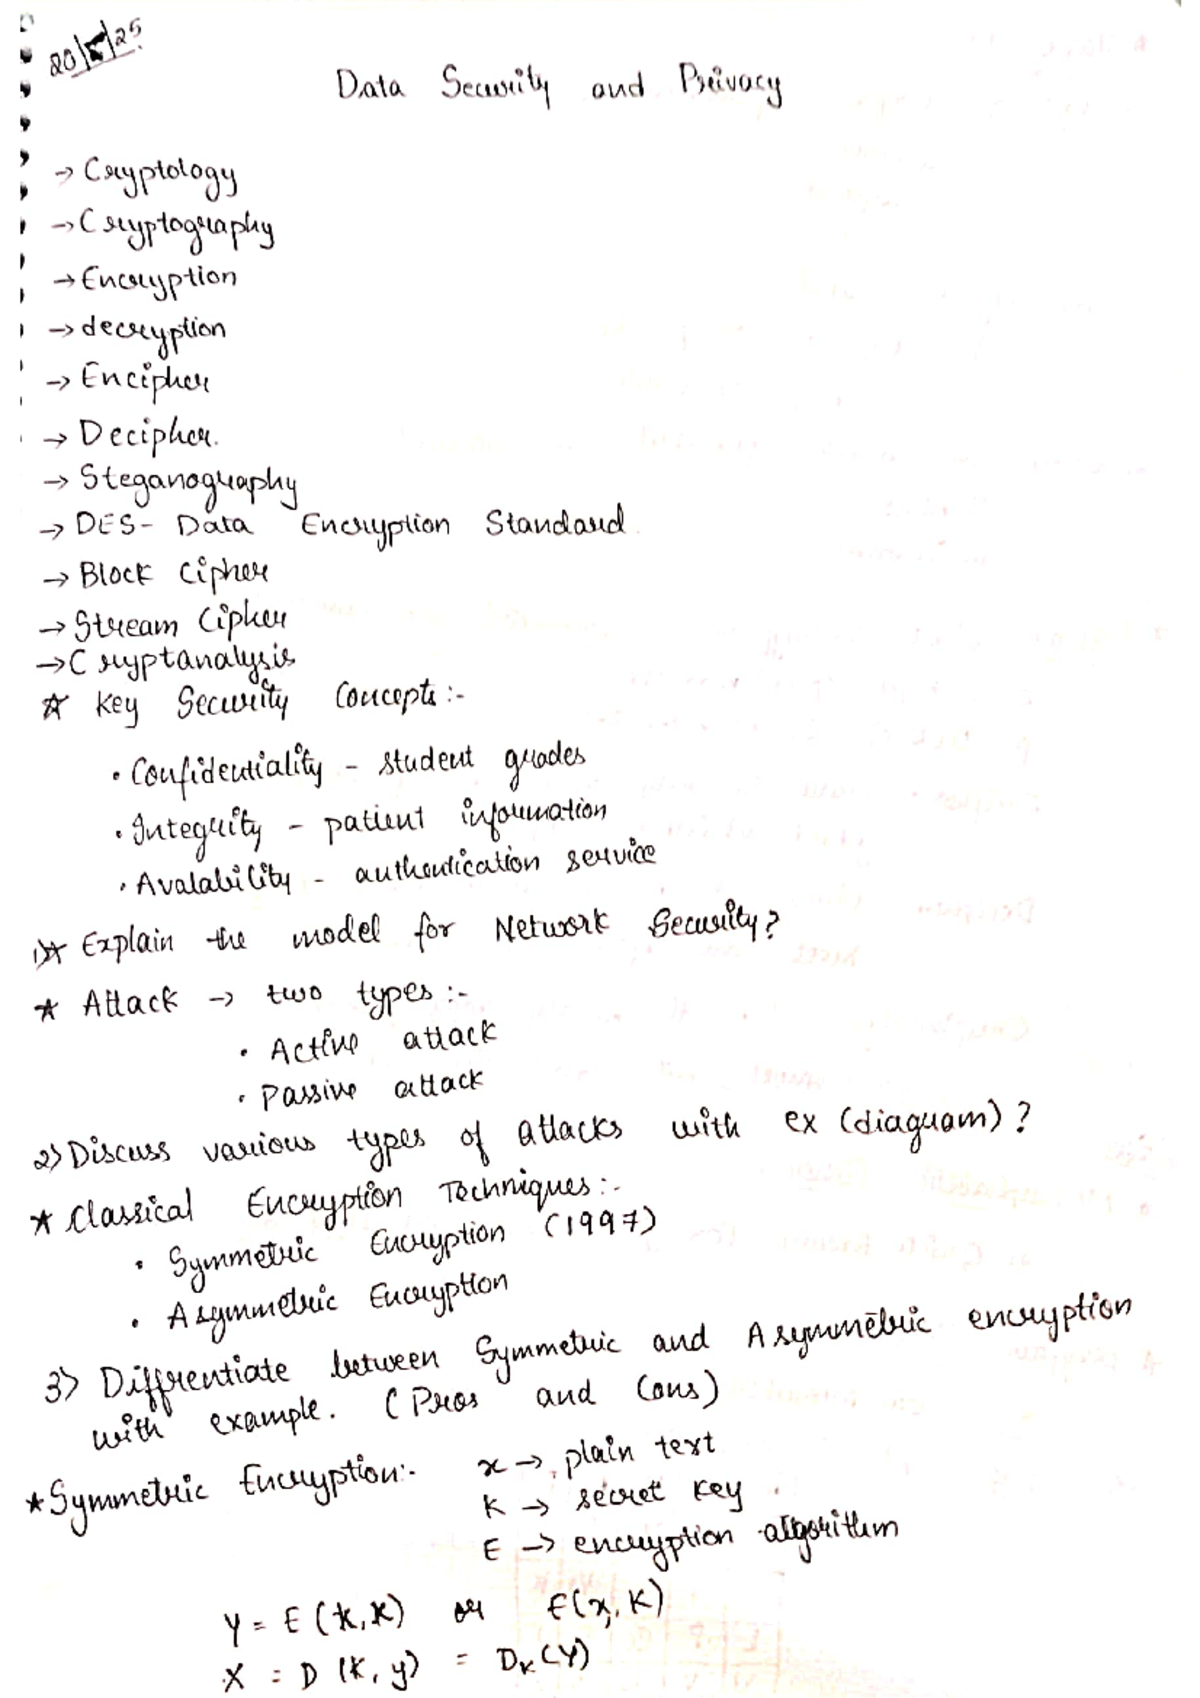 20/5/25
Data Security and Privacy
→ Cryptology
→ Cryptography
→ Encryption
→ decryption
→ Encipher
→ Decipher.
→ Steganography
→ DES- Data Encryption Standard
→ Block Cipher
→ Stream Cipher
→ Cryptanalysis
☆ Key Security Concepts:-
• Confidentiality - student grades
• Integrity - patient information
• Avalability - authentication service
1)☆ Explain the model for Network Security?
☆ Attack → two types:-
• Active attack
• Passive attack
2) Discuss various types of attacks with ex (diagram)?
☆ Classical Encryption Techniques:-
• Symmetric Encryption (1997)
• Asymmetric Encryption
3) Diffrentiate between Symmetric and Asymmetric encryption
with example. (Pros and Cons)
☆ Symmetric Encryption:- x → plain text
K → secret key
E → encryption algorithm
Y = E(k,x) or E(x,K)
X = D(K,y) = Dₖ(Y)